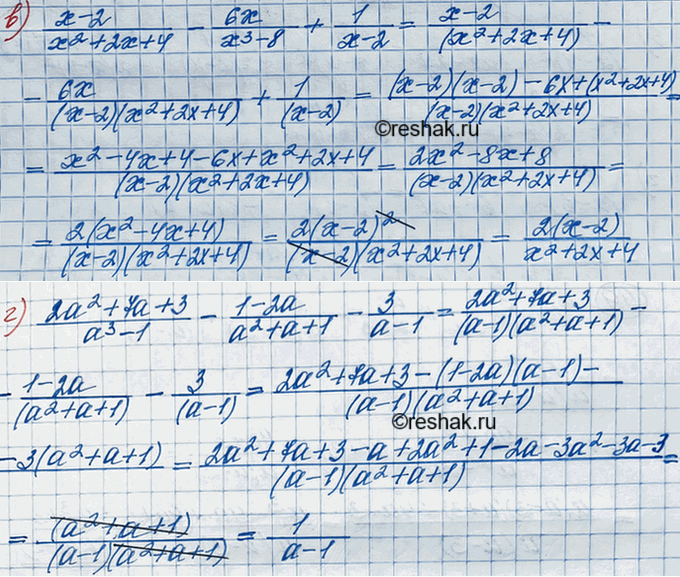 в) (x-2)/(x²+2x+4) - 6x/(x³-8) + 1/(x-2) = (x-2)/(x²+2x+4) -
- 6x/((x-2)(x²+2x+4)) + 1/(x-2) = ((x-2)(x-2) - 6x+(x²+2x+4))/((x-2)(x²+2x+4)) =
©reshak.ru
= (x²-4x+4-6x+x²+2x+4)/((x-2)(x²+2x+4)) = (2x²-8x+8)/((x-2)(x²+2x+4)) =
= 2(x²-4x+4)/((x-2)(x²+2x+4)) = 2(x-2)²/((x-2)(x²+2x+4)) = 2(x-2)/(x²+2x+4)
г) (2a²+7a+3)/(a³-1) - (1-2a)/(a²+a+1) - 3/(a-1) = (2a²+7a+3)/((a-1)(a²+a+1)) -
- (1-2a)/(a²+a+1) - 3/(a-1) = (2a²+7a+3-(1-2a)(a-1)-)/((a-1)(a²+a+1))
©reshak.ru
-3(a²+a+1) = (2a²+7a+3-a+2a²+1-2a-3a²-3a-3)/((a-1)(a²+a+1)) =
= (a²+a+1)/((a-1)(a²+a+1)) = 1/(a-1)